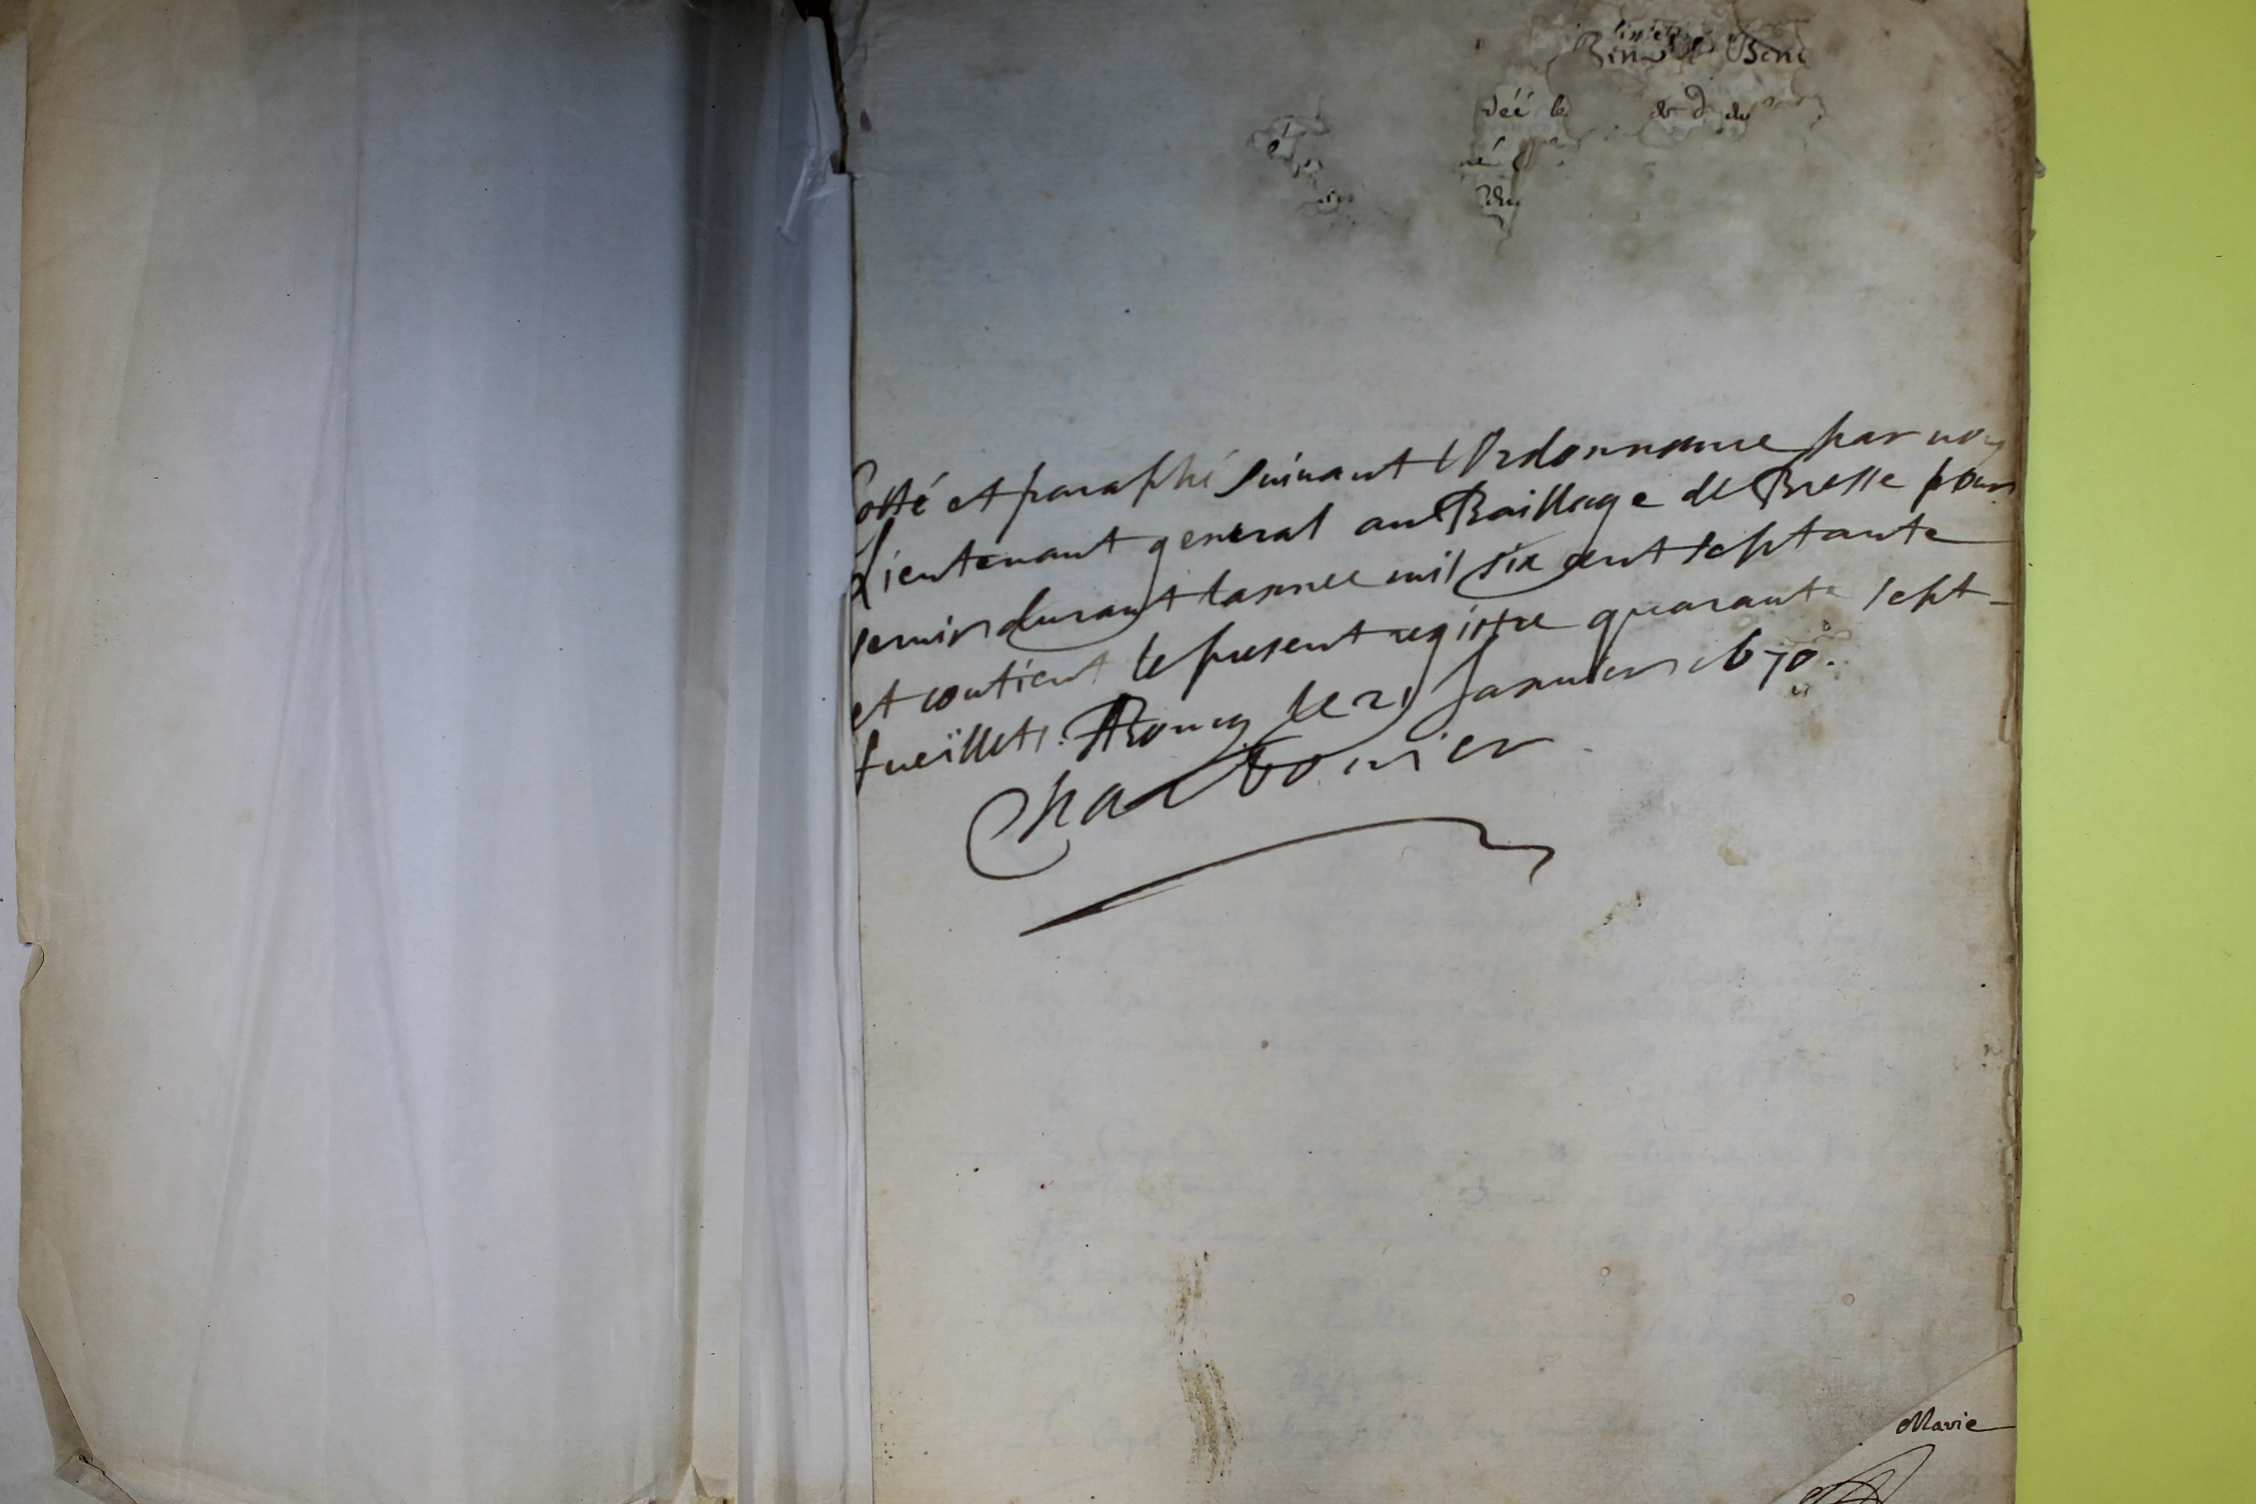 Cotté et paraphé suivant l'Ordonnance par nous
Lieutenant general au Bailliage de Bresse pour
servir durant lannee mil six cent septante
et contient le present registre quarante sept
fueïllets. A Bourg le 21 Januier 1670.
Charbonier
Marie